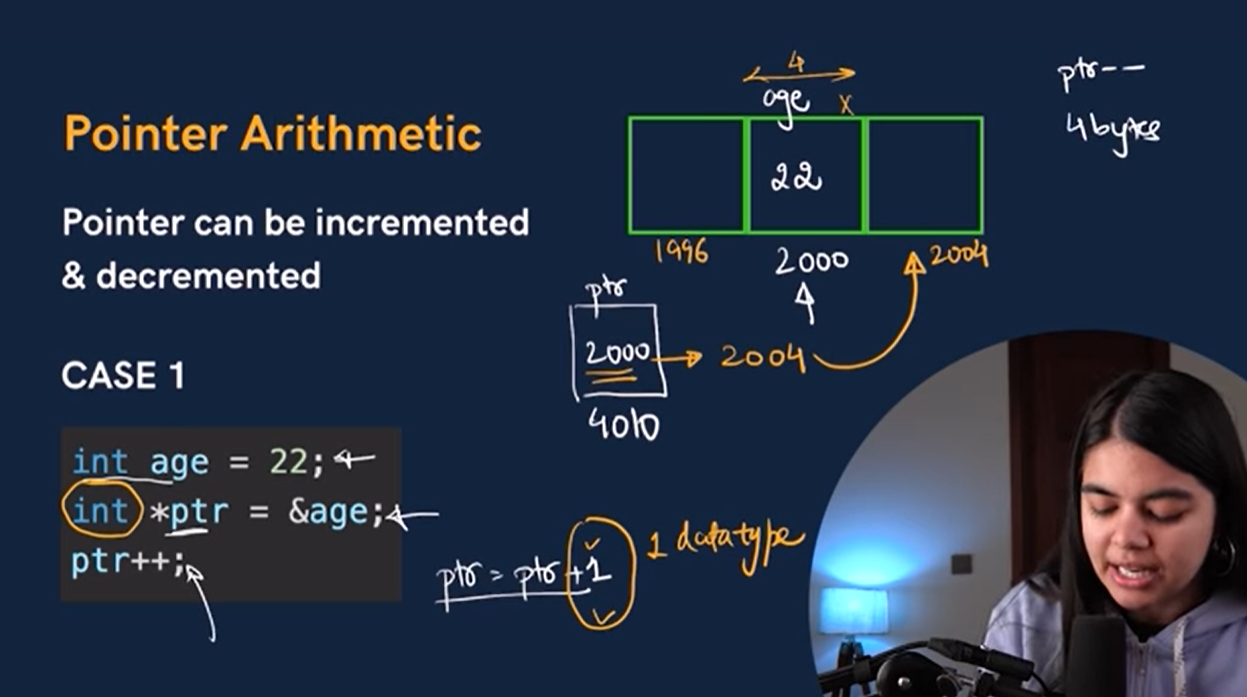 Pointer Arithmetic
Pointer can be incremented
& decremented
CASE 1
int age = 22;
int *ptr = &age;
ptr++;
4
age x
22
1996
2000
2004
ptr
2000 → 2004
4010
ptr = ptr +1
1 datatype
ptr--
4 bytes